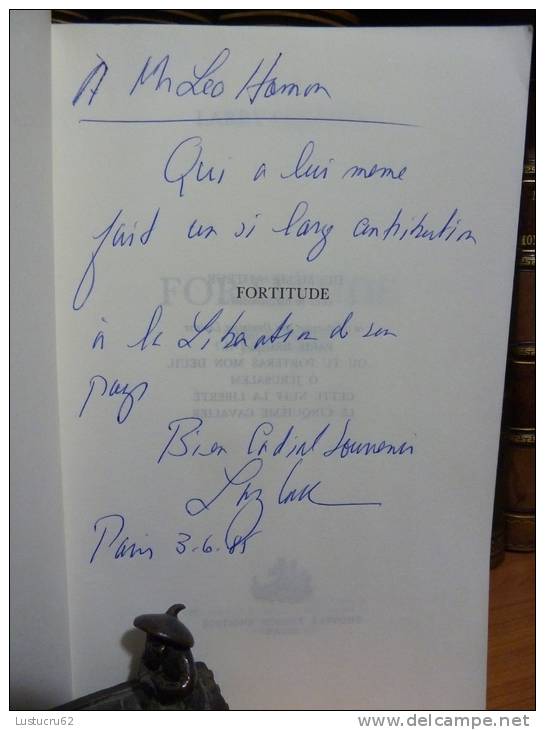 A Mr Leo Hamon
Qui a lui meme
fait un si larg contribution
FORTITUDE
à la Liberation de son
pays
Bien Cordial Souvenir
Paris 3.6.85
PARIS
OU TU PORTERAS MON DEUIL
O JERUSALEM
CETTE NUIT LA LIBERTÉ
LE CINQUIÈME CAVALIER
Lustucru62
http://www.delcampe.net